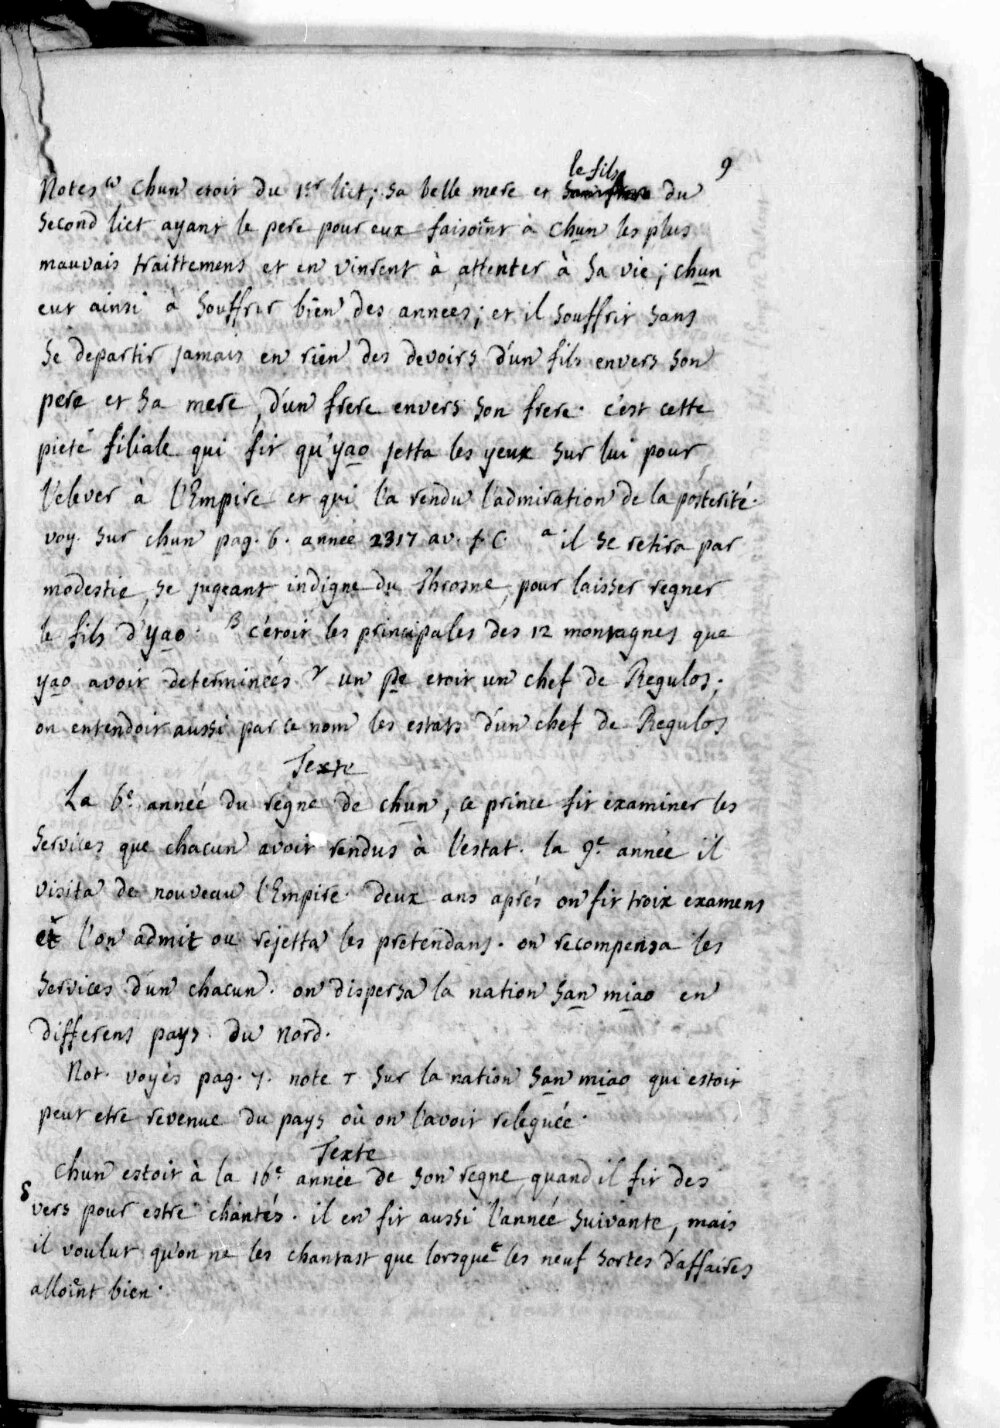 9
Notes ω chun etoit du 1er lict; sa belle mere et le fils du
second lict ayant le pere pour eux faisoint à chun les plus
mauvais traittemens et en vinrent à attenter à sa vie; chun
eut ainsi à souffrir bien des années; et il souffrit sans
se departir jamais en rien des devoirs d'un fils envers son
pere et sa mere, d'un frere envers son frere. c'est cette
pieté filiale qui fit qu'yao jetta les yeux sur lui pour
l'elever à l'Empire et qui l'a rendu l'admiration de la posterité.
voy. sur chun pag. 6. année 2317 av. J. C. a il se retira par
modestie, se jugeant indigne du Throsne, pour laisser regner
le fils d'yao. β c'étoit les principales des 12 montagnes que
yao avoit determinées. γ un pe etoit un chef de Regulos;
on entendoit aussi par ce nom les estats d'un chef de Regulos
Texte
La 6e année du regne de chun, ce prince fit examiner les
services que chacun avoit rendus à l'estat. la 9e année il
visita de nouveau l'Empire. deux ans aprés on fit troix examens
et l'on admit ou rejetta les pretendans. on recompensa les
services d'un chacun. on dispersa la nation san miao en
differens pays du nord.
Not. voyés pag. 7. note τ sur la nation san miao qui estoit
peut etre revenue du pays où on l'avoit releguée.
Texte
chun estoit à la 16e année de son regne quand il fit des
δ vers pour estre chantés. il en fit aussi l'année suivante, mais
il voulut qu'on ne les chantast que lorsque ε les neuf sortes d'affaires
alloint bien.